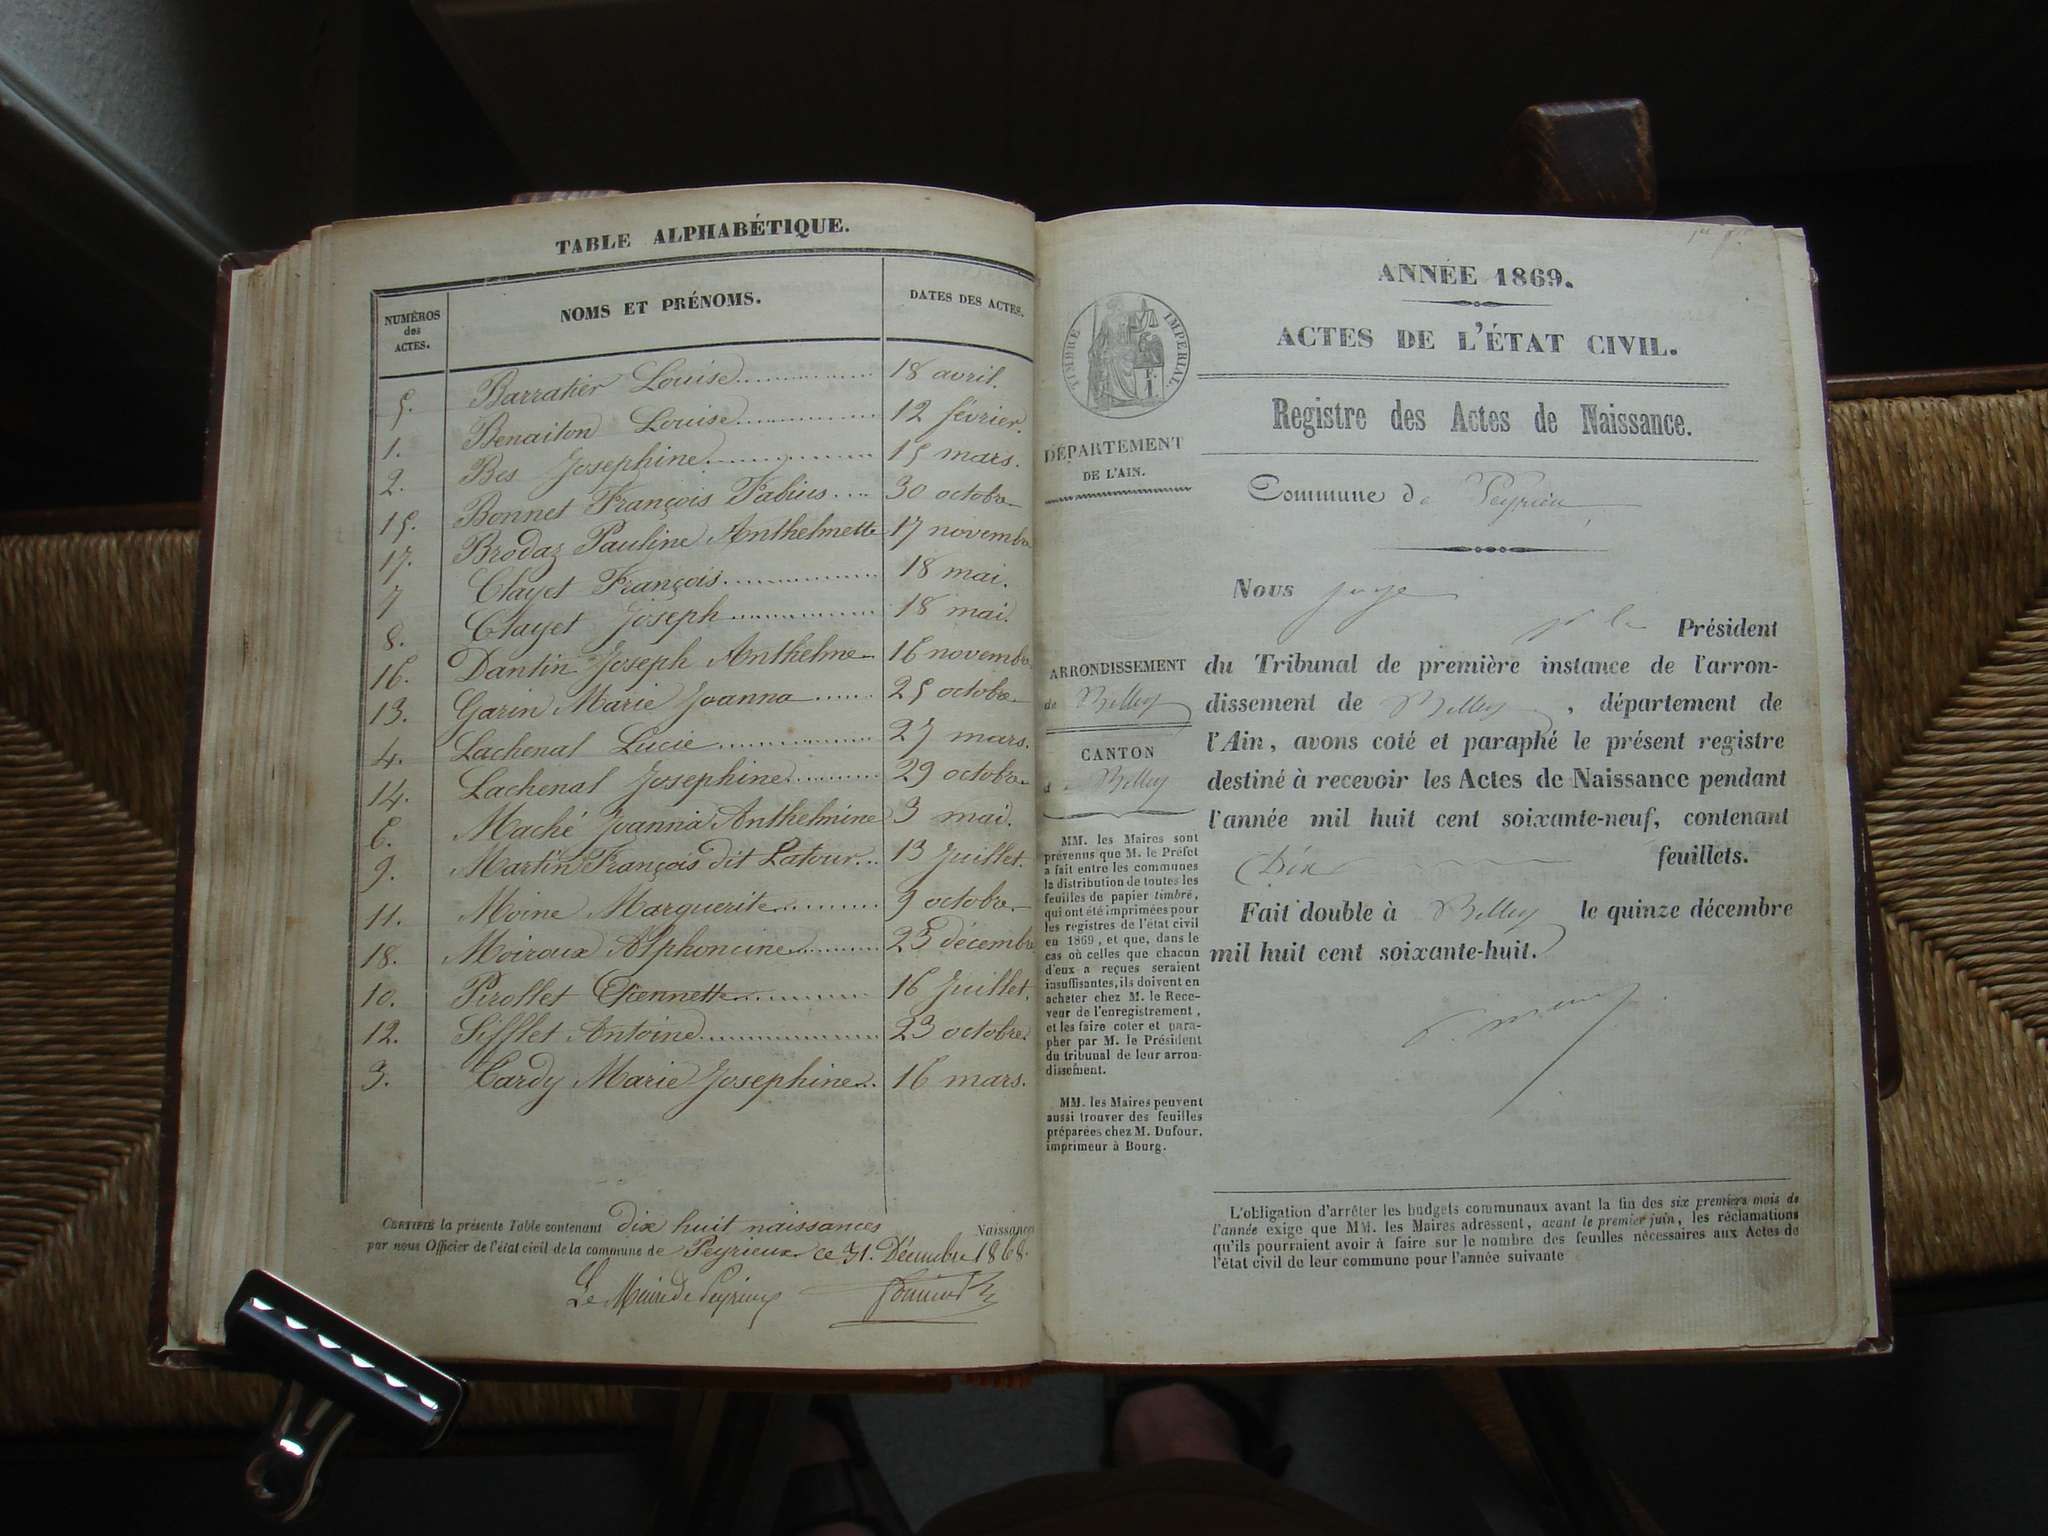 TABLE ALPHABÉTIQUE.
NUMÉROS des ACTES. NOMS ET PRÉNOMS. DATES DES ACTES.
5. Barratier Louise 18 avril.
1. Benaiton Louise 12 février.
2. Bes Josephine 15 mars.
15. Bonnet François Fabius 30 octobre
17. Brodaz Pauline Anthelmette 17 novembre
7 Clayet François 18 mai.
8. Clayet Joseph 18 mai.
16. Dantin Joseph Anthelme 16 novembre
13. Garin Marie Joanna 25 octobre
4. Lachenal Lucie 27 mars.
14. Lachenal Josephine 29 octobre
6. Maché Joanna Anthelmine 3 mai.
9. Martin François dit Latour 13 Juillet.
11. Moine Marguerite 9 octobre
18. Moiroux Alphoncine 25 décembre
10. Pirollet Etiennette 16 Juillet.
12. Sifflet Antoine 23 octobre
3. Tardy Marie Josephine 16 mars.
CERTIFIÉ la présente Table contenant dix huit naissances Naissances
par nous Officier de l'état civil de la commune de Peyrieux ce 31. Décembre 1868.
Le Maire de Peyrieux
ANNÉE 1869.
ACTES DE L'ÉTAT CIVIL.
TIMBRE IMPÉRIAL
Registre des Actes de Naissance.
DÉPARTEMENT
DE L'AIN.
Commune de Peyrieu
Nous juge
Président
ARRONDISSEMENT
de Belley
CANTON
d Belley
du Tribunal de première instance de l'arron-
dissement de Belley, département de
l'Ain, avons coté et paraphé le présent registre
destiné à recevoir les Actes de Naissance pendant
l'année mil huit cent soixante-neuf, contenant
Dix feuillets.
Fait double à Belley le quinze décembre
mil huit cent soixante-huit.
MM. les Maires sont
prévenus que M. le Préfet
a fait entre les communes
la distribution de toutes les
feuilles de papier timbré,
qui ont été imprimées pour
les registres de l'état civil
en 1869, et que, dans le
cas où celles que chacun
d'eux a reçues seraient
insuffisantes, ils doivent en
acheter chez M. le Rece-
veur de l'enregistrement,
et les faire coter et para-
pher par M. le Président
du tribunal de leur arron-
dissement.
MM. les Maires peuvent
aussi trouver des feuilles
préparées chez M. Dufour,
imprimeur à Bourg.
L'obligation d'arrêter les budgets communaux avant la fin des six premiers mois de
l'année exige que MM. les Maires adressent, avant le premier juin, les réclamations
qu'ils pourraient avoir à faire sur le nombre des feuilles nécessaires aux Actes de
l'état civil de leur commune pour l'année suivante